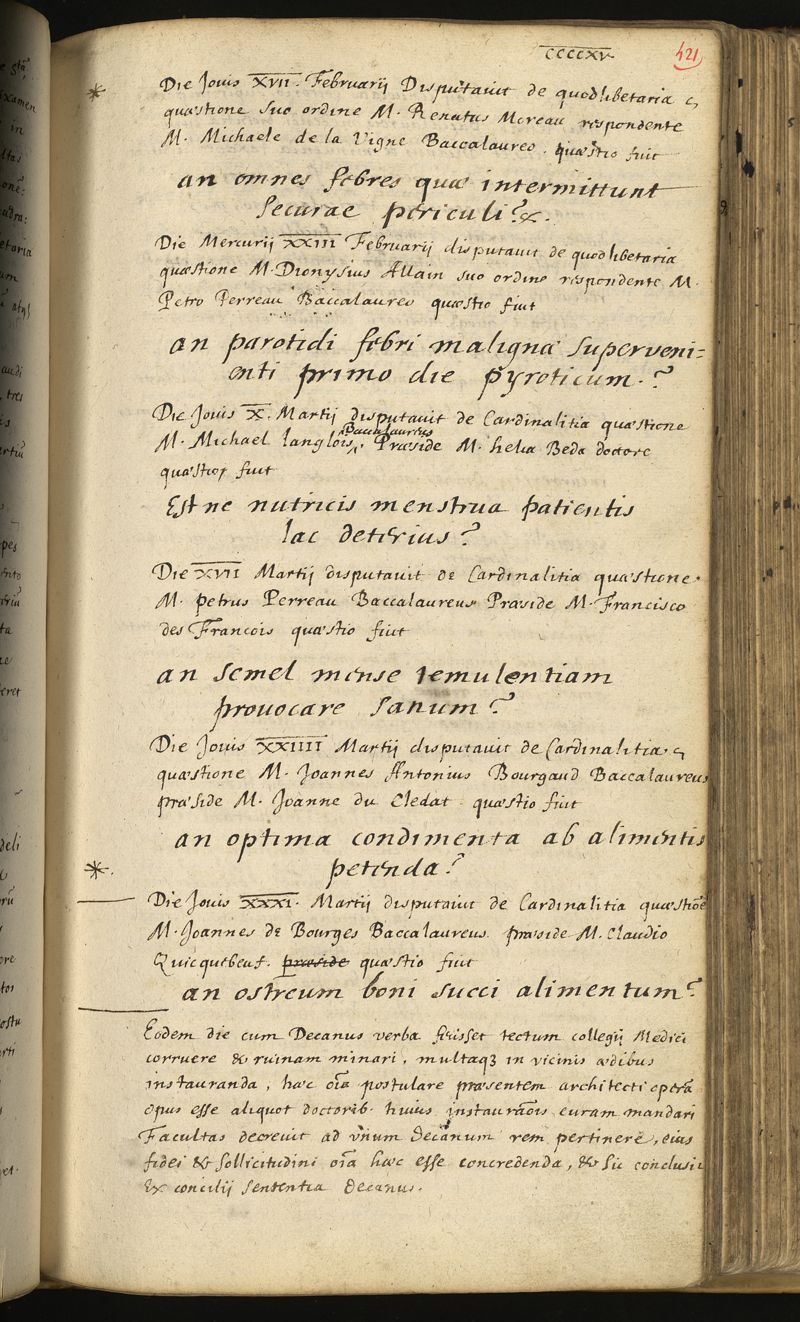 CCCCXV.
421
* Die Jovis XVII. Februarij Disputavit de quodlibetaria
quæstione suo ordine M. Renatus Moreau respondente
M. Michaele de la Vigne Baccalaureo. quæstio fuit
an omnes febres quæ intermittunt
securae periculi? &.
Die Mercurij XXIII Februarij disputavit de quodlibetaria
quæstione M. Dionysius Allain suo ordine respondente M.
Petro Perreau Baccalaureo quæstio fuit
an parotidi febri malignæ superveni=
enti primo die pyroticum.?
Die Jovis X. Martij disputavit de Cardinalitia quæstione
Baccalaureus
M. Michael Langlois, Præside M. helia Beda doctore
quæstio fuit
Est ne nutricis menstrua patientis
lac deterius?
Die XVII Martij disputavit de Cardinalitia quæstione.
M. petrus Perreau Baccalaureus Præside M. Francisco
des Francois quæstio fuit
an semel mense temulentiam
provocare sanum?
Die Jovis XXIIII Martij disputavit de Cardinalitia
quæstione M. Joannes Antonius Bourgaud Baccalaureus
præside M. Joanne du Cledat quæstio fuit
an optima condimenta ab alimentis
petenda?
*.
Die Jovis XXXI. Martij disputavit de Cardinalitia quæstiōe
M. Joannes de Bourges Baccalaureus. præside M. Claudio
Quicquebeuf. præside quæstio fuit
an ostreum boni succi alimentum?
Eodem die cum Decanus verba fecisset tectum collegij Medici
corruere & ruinam minari, multaqz in vicinis ædibus
instauranda, hæc oīa postulare præsentem architecti operā
opus esse aliquot doctorib. huius instauraōis curam mandari
Facultas decrevit ad vnum Decanum rem pertinere, eius
fidei & sollicitudini oīa hæc esse concredenda, & sic conclusit
Ex concilij sententia Decanus.